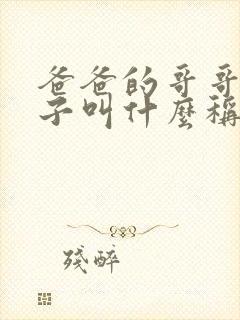 爸爸的哥哥
子叫什麼稱
殘醉